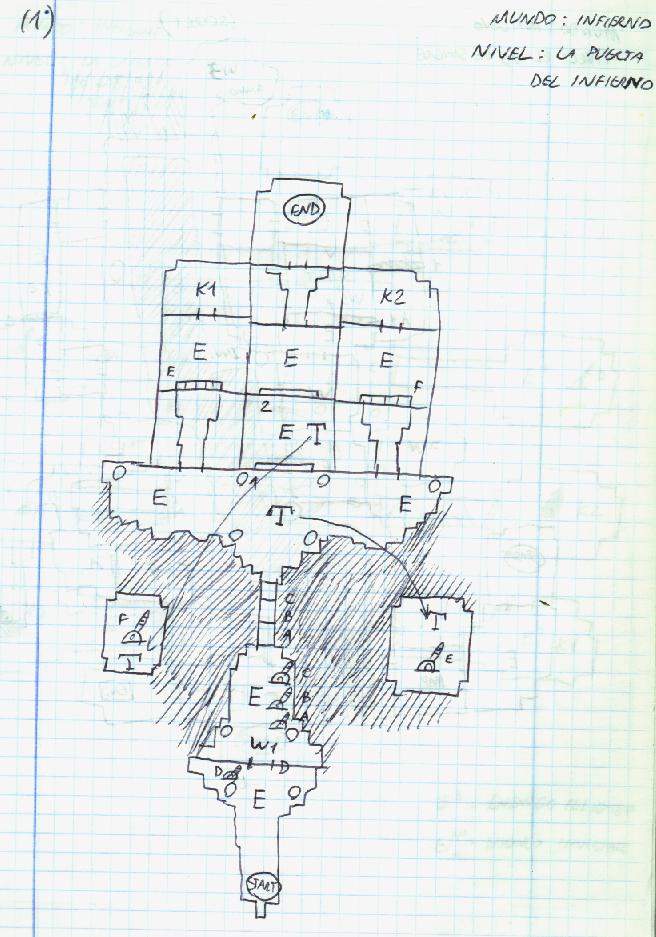 (1°)
MUNDO: INFIERNO
NIVEL: LA PUERTA
DEL INFIERNO
END
K1
K2
E
E
E
E
F
2
E T
1
E
E
T
C
B
A
F
T
T
E
E
C
B
A
W1
D
D
E
START